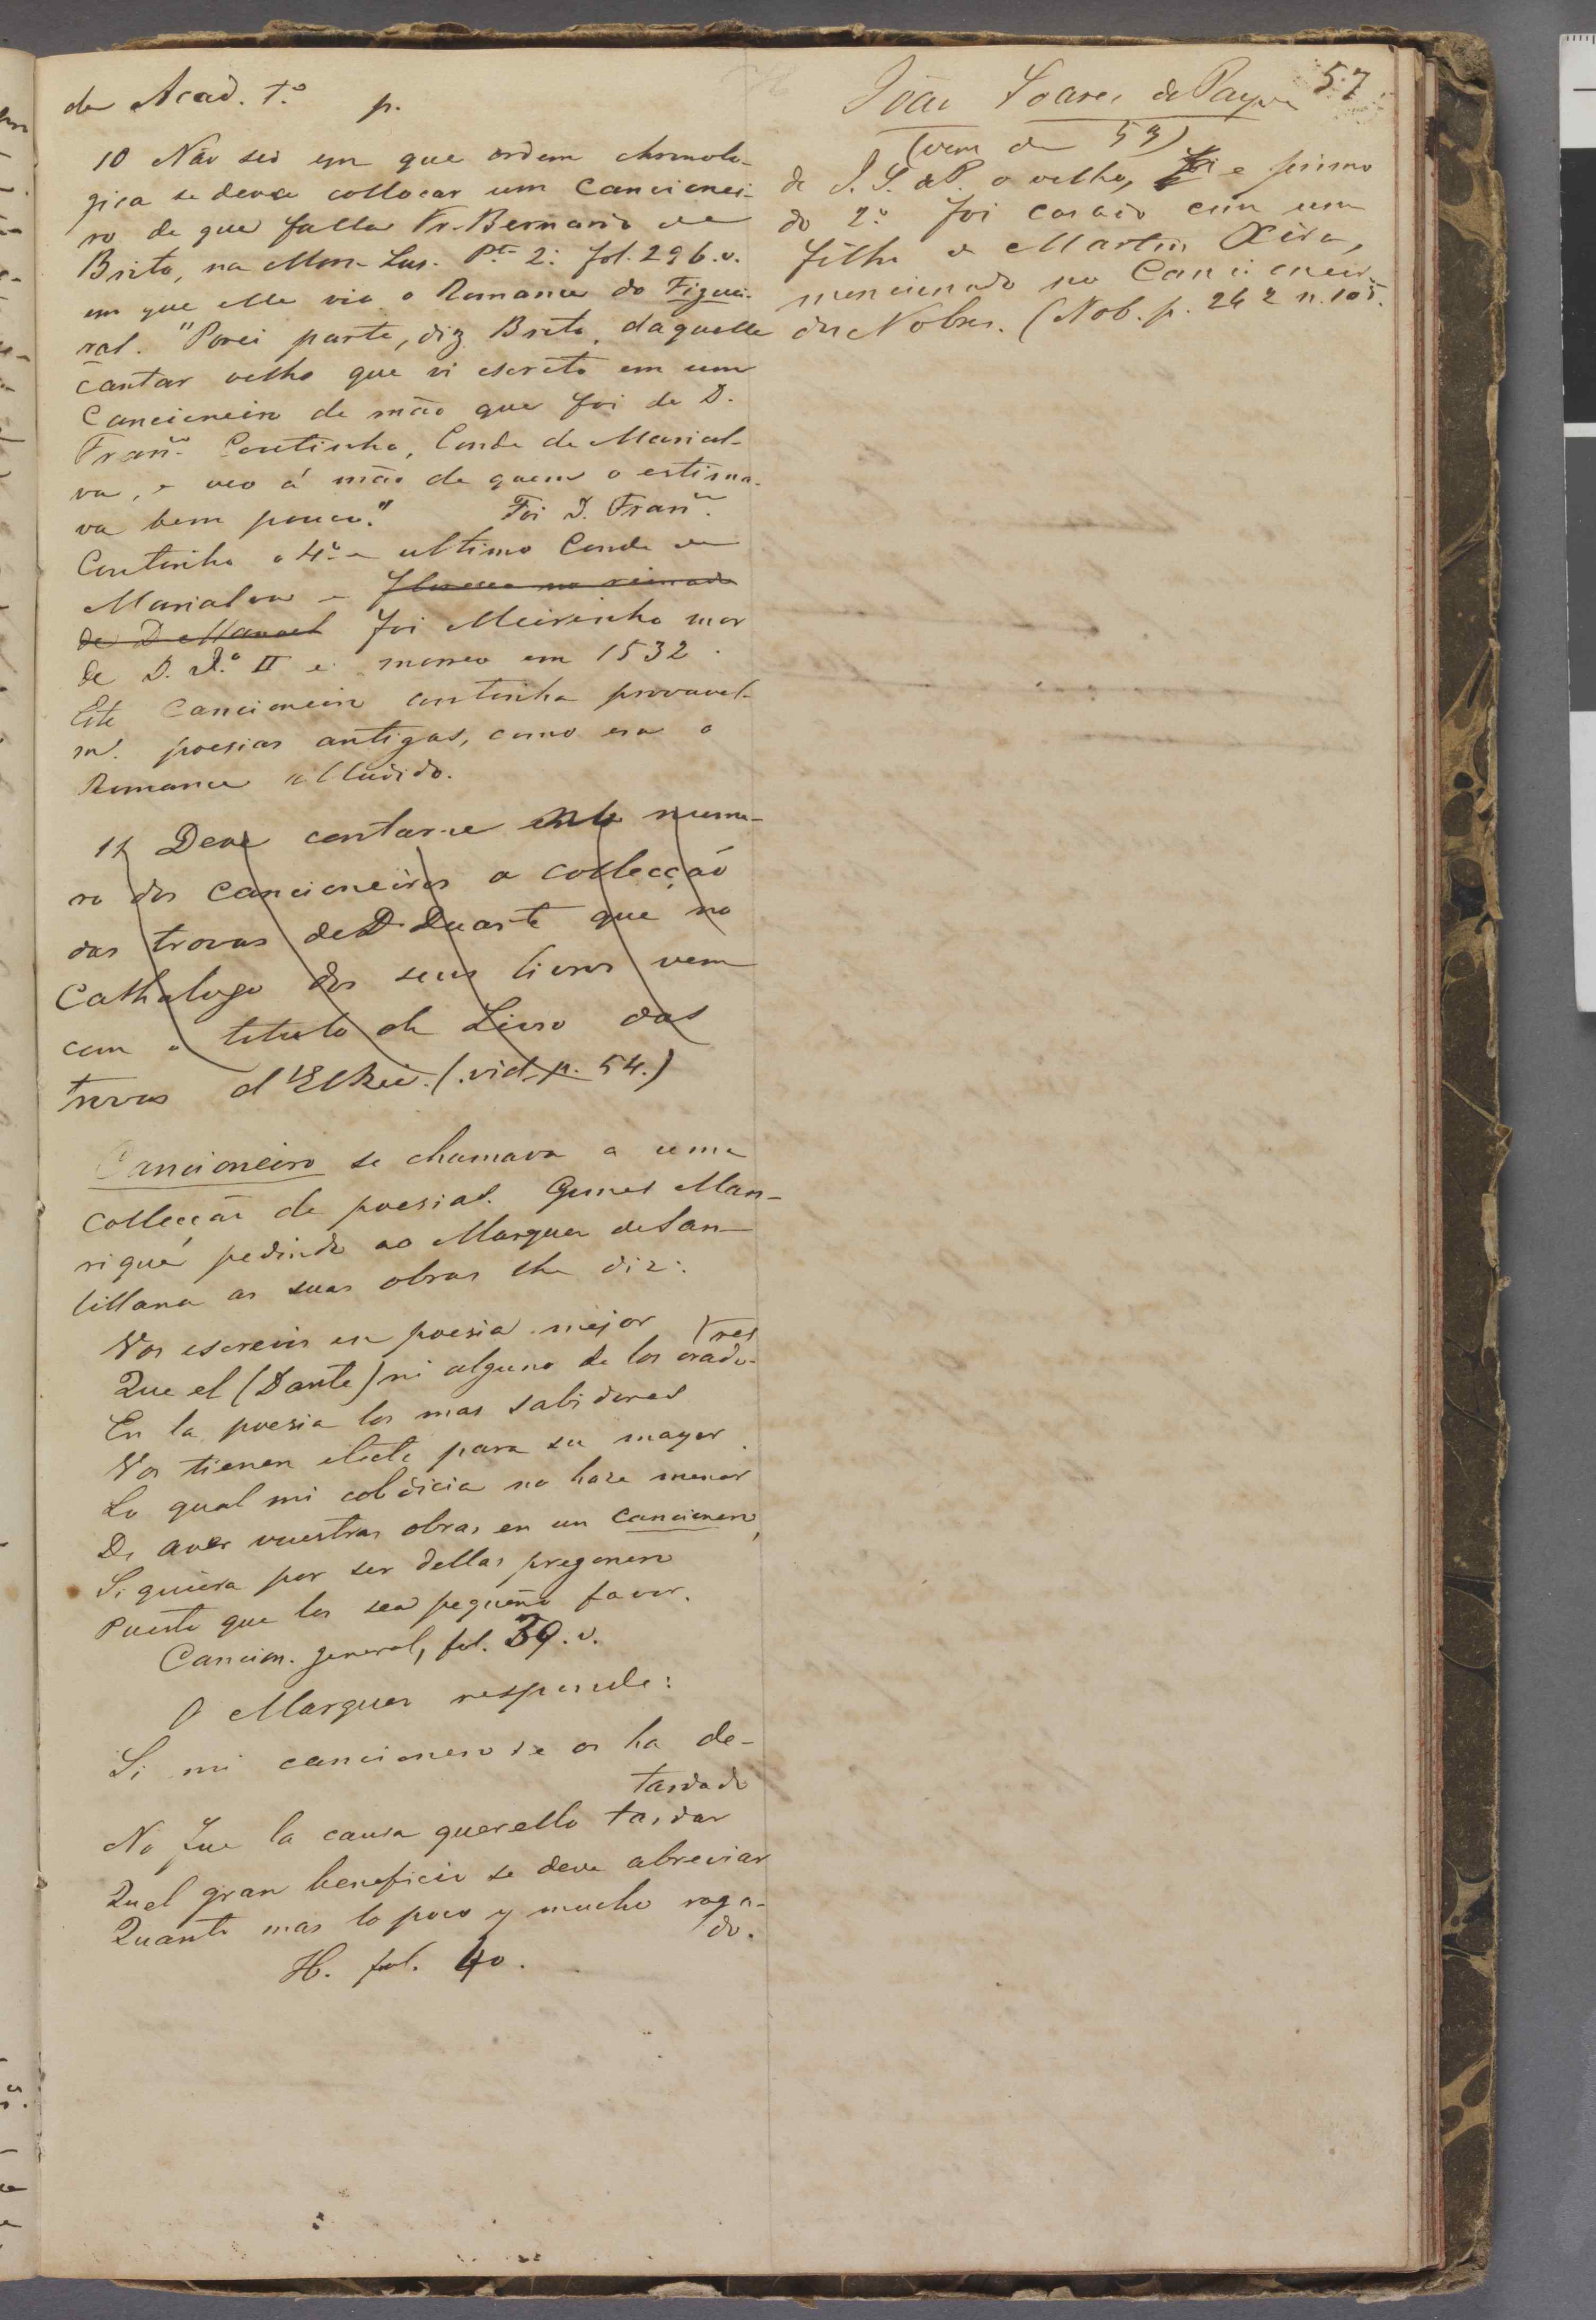 da Acad. t.º p.
10 Não sei em que ordem chronolo-
gica se deva collocar um Cancionei-
ro de que falla Fr. Bernardo de
Brito, na Mon. Lus. P.te 2.ª fol. 296. v.
em que elle viu o Romance do Figuei-
ral. "Porei parte, diz Brito, daquelle
cantar velho que vi escrito em um
Cancioneiro de mão que foi de D.
Fran.co Coutinho, Conde de Marial-
va, e veo á mão de quem o estima-
va bem pouco." Foi D. Fran.co
Coutinho o 4.º e ultimo Conde de
Marialva e floresceo no reinado
de D. Manoel foi Meirinho mor
de D. J.º II e morreo em 1532.
Este Cancioneiro continha provavel-
m.te poesias antigas, como era o
Romance alludido.
11 Deve contar-se no nume-
ro dos Cancioneiros a collecção
das trovas de D. Duarte que no
Cathalogo dos seus livros vem
com o titulo de Livro das
trovas d'ElRei. (vid. p. 54.)
Cancioneiro se chamava a uma
collecção de poesias. Gomes Man-
rique pedindo ao Marquez de San-
tillana as suas obras lhe diz:
Vos escrevis en poesia mejor
Que el (Dante) ni alguno de los orado-
res
En la poesia los mas sabidores
Vos tienen electo para su mayor
Lo qual mi cobdicia no haze menor
De aver vuestras obras en un cancionero,
Siquiera por ser dellas pregonero
Puesto que les sea pequeño favor.
Cancion. general, fol. 39. v.
O Marquez responde:
Si mi cancionero se os ha de-
tardado
No fue la causa querello tardar
Quel gran beneficio se deve abreviar
Quanto mas lo poco y mucho roga-
do.
Ib. fol. 40.
57
João Soares de Payva
(vem de 53)
de J. S. de P. o velho, e primo
do 2.º foi casado com uma
filha de Martin Xira,
mencionado no Cancioneiro
dos Nobres. (Nob. p. 242 n. 105.